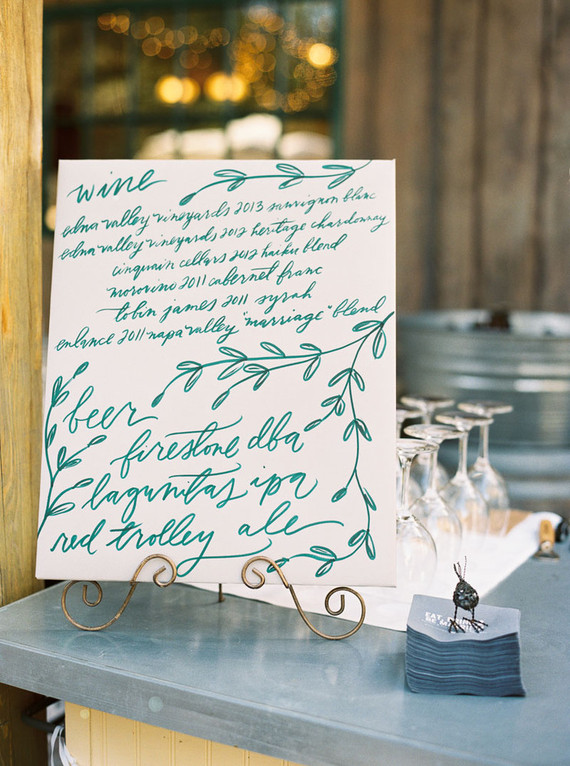 wine
edna valley vineyards 2013 sauvignon blanc
edna valley vineyards 2012 heritage chardonnay
cinquain cellars 2012 haiku blend
morovino 2011 cabernet franc
tobin james 2011 syrah
enlance 2011 napa valley "marriage" blend
beer
firestone dba
lagunitas ipa
red trolley ale
EAT,